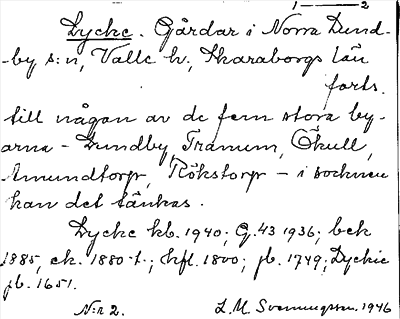 1 — 2
Lycke. Gårdar i Norra Lund-
-by s:n, Valle h., Skaraborgs län
forts.
till någan av de fem stora by-
arna - Lundby Tranum, Ökull,
Amundtorp, Rökstorp - i socknen
kan det tänkas.
Lycke kb. 1940; G. 43 1936; bek
1885, ek. 1880-t.; hfl. 1800; jb. 1749; Lyckie
jb. 1651.
N:r 2. L. M. Svenungsson. 1946